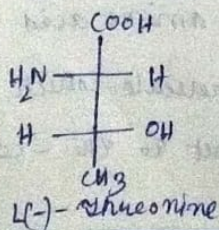 COOH
H₂N H
H OH
CH3
L(-)- Threonine